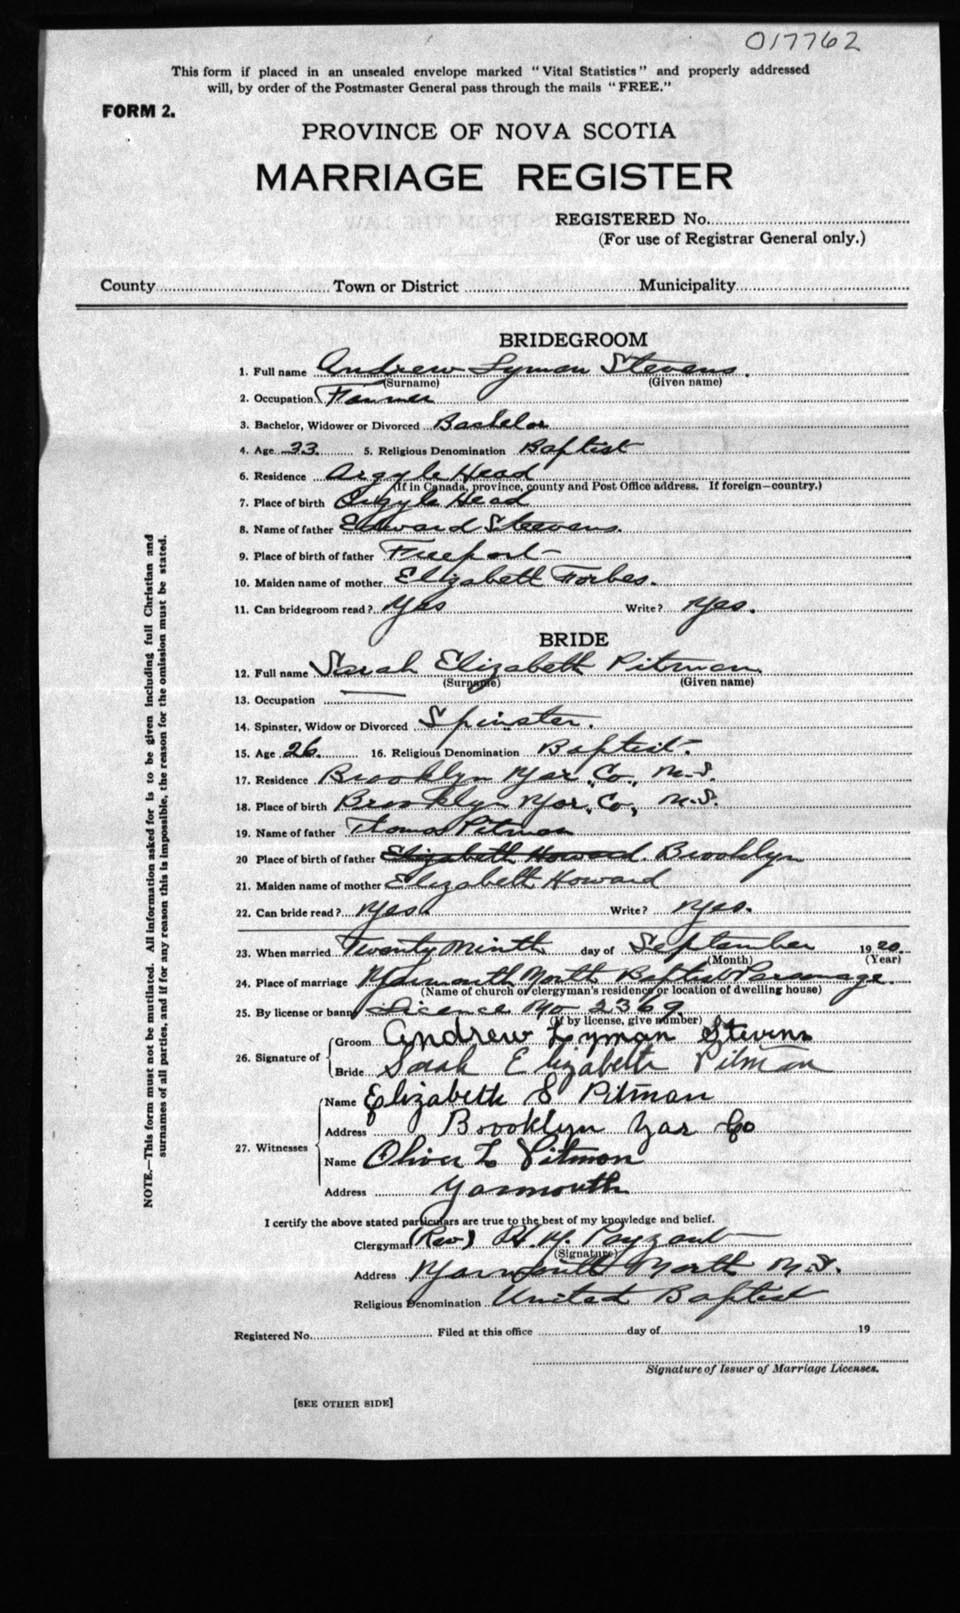 017762
This form if placed in an unsealed envelope marked "Vital Statistics" and properly addressed
will, by order of the Postmaster General pass through the mails "FREE."
FORM 2.
PROVINCE OF NOVA SCOTIA
MARRIAGE REGISTER
REGISTERED No.
(For use of Registrar General only.)
County Town or District Municipality
BRIDEGROOM
1. Full name Andrew Lyman Stevens.
(Surname) (Given name)
2. Occupation Farmer
3. Bachelor, Widower or Divorced Bachelor
4. Age 33. 5. Religious Denomination Baptist
6. Residence Argyle Head
(If in Canada, province, county and Post Office address. If foreign—country.)
7. Place of birth Argyle Head
8. Name of father Edward Steevens.
9. Place of birth of father Freeport
10. Maiden name of mother Elizabeth Forbes.
11. Can bridegroom read? Yes Write? Yes.
BRIDE
12. Full name Sarah Elizabeth Pitman
(Surname) (Given name)
13. Occupation —
14. Spinster, Widow or Divorced Spinster.
15. Age 26. 16. Religious Denomination Baptist.
17. Residence Brooklyn Yar. Co., N.S.
18. Place of birth Brooklyn Yar. Co., N.S.
19. Name of father Thomas Pitman
20 Place of birth of father Elizabeth Howard Brooklyn
21. Maiden name of mother Elizabeth Howard
22. Can bride read? Yes. Write? Yes.
23. When married Twenty Ninth day of September 1920.
(Month) (Year)
24. Place of marriage Yarmouth North Baptist Parsonage.
(Name of church or clergyman's residence or location of dwelling house)
25. By license or bann Licence No 2369.
(If by license, give number)
26. Signature of Groom Andrew Lyman Stevens
Bride Sarah Elizabeth Pitman
27. Witnesses Name Elizabeth S Pitman
Address Brooklyn Yar Co
Name Oliver L Pitman
Address Yarmouth
I certify the above stated particulars are true to the best of my knowledge and belief.
Clergyman (Rev) H. Y. Payzant
(Signature)
Address Yarmouth North N.S.
Religious Denomination United Baptist
Registered No. Filed at this office day of 19
Signature of Issuer of Marriage Licenses.
[SEE OTHER SIDE]
NOTE.—This form must not be mutilated. All information asked for is to be given including full Christian and
surnames of all parties, and if for any reason this is impossible, the reason for the omission must be stated.